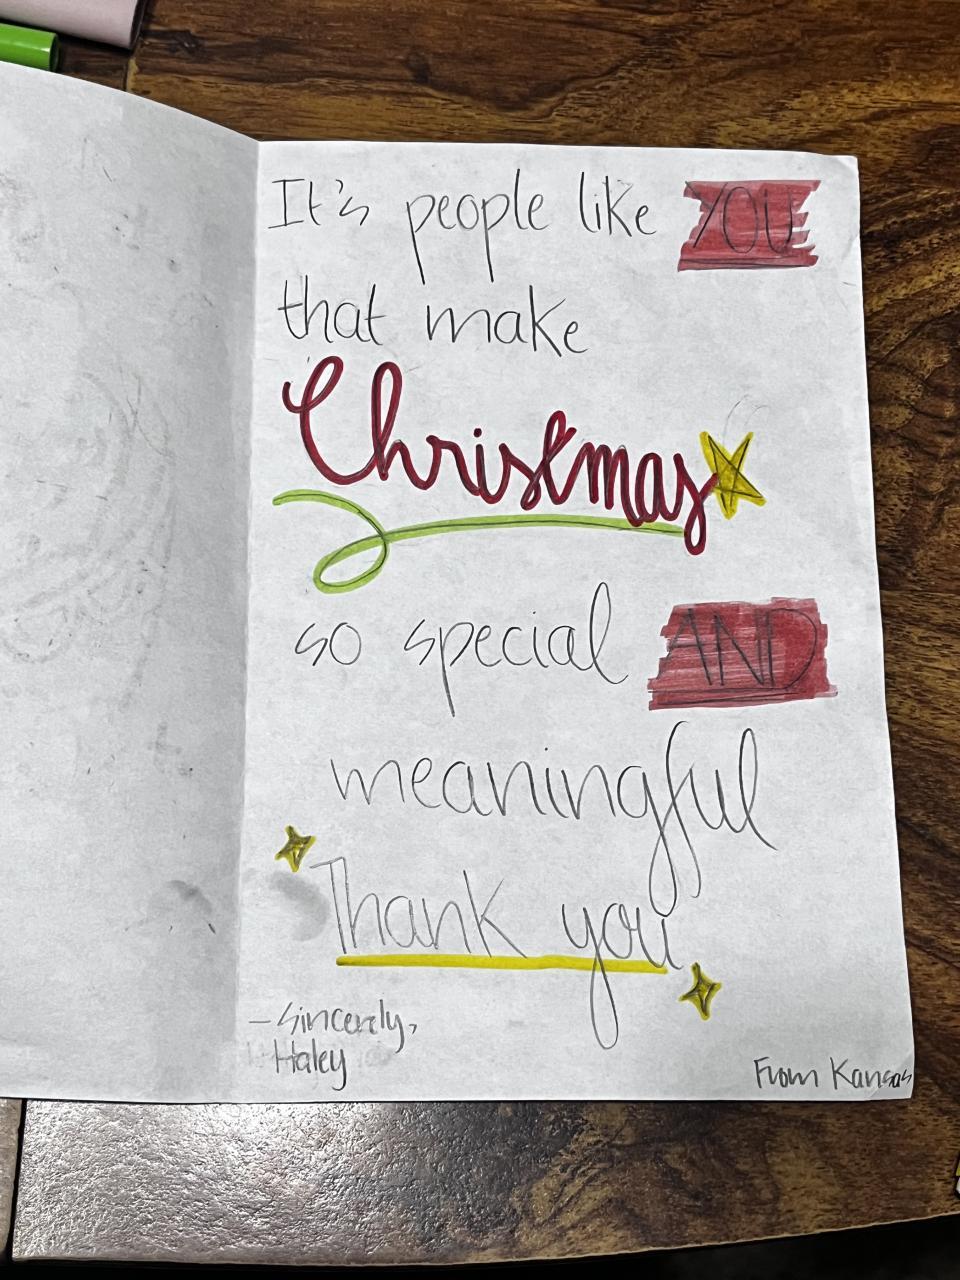 It's people like YOU
that make
Christmas
so special AND
meaningful
Thank you
- Sincerly,
Haley
From Kansas